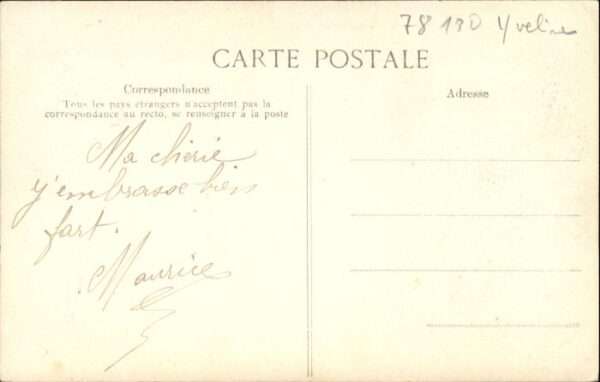 78 130 Yvelines
CARTE POSTALE
Correspondance
Tous les pays étrangers n'acceptent pas la
correspondance au recto, se renseigner à la poste
Adresse
Ma chérie
j'embrasse bien
fort.
Maurice